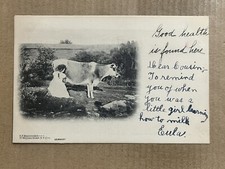 Good health
is found here
Dear Cousin,
To remind
you of when
you was a
little girl learning
how to milk
Eula.